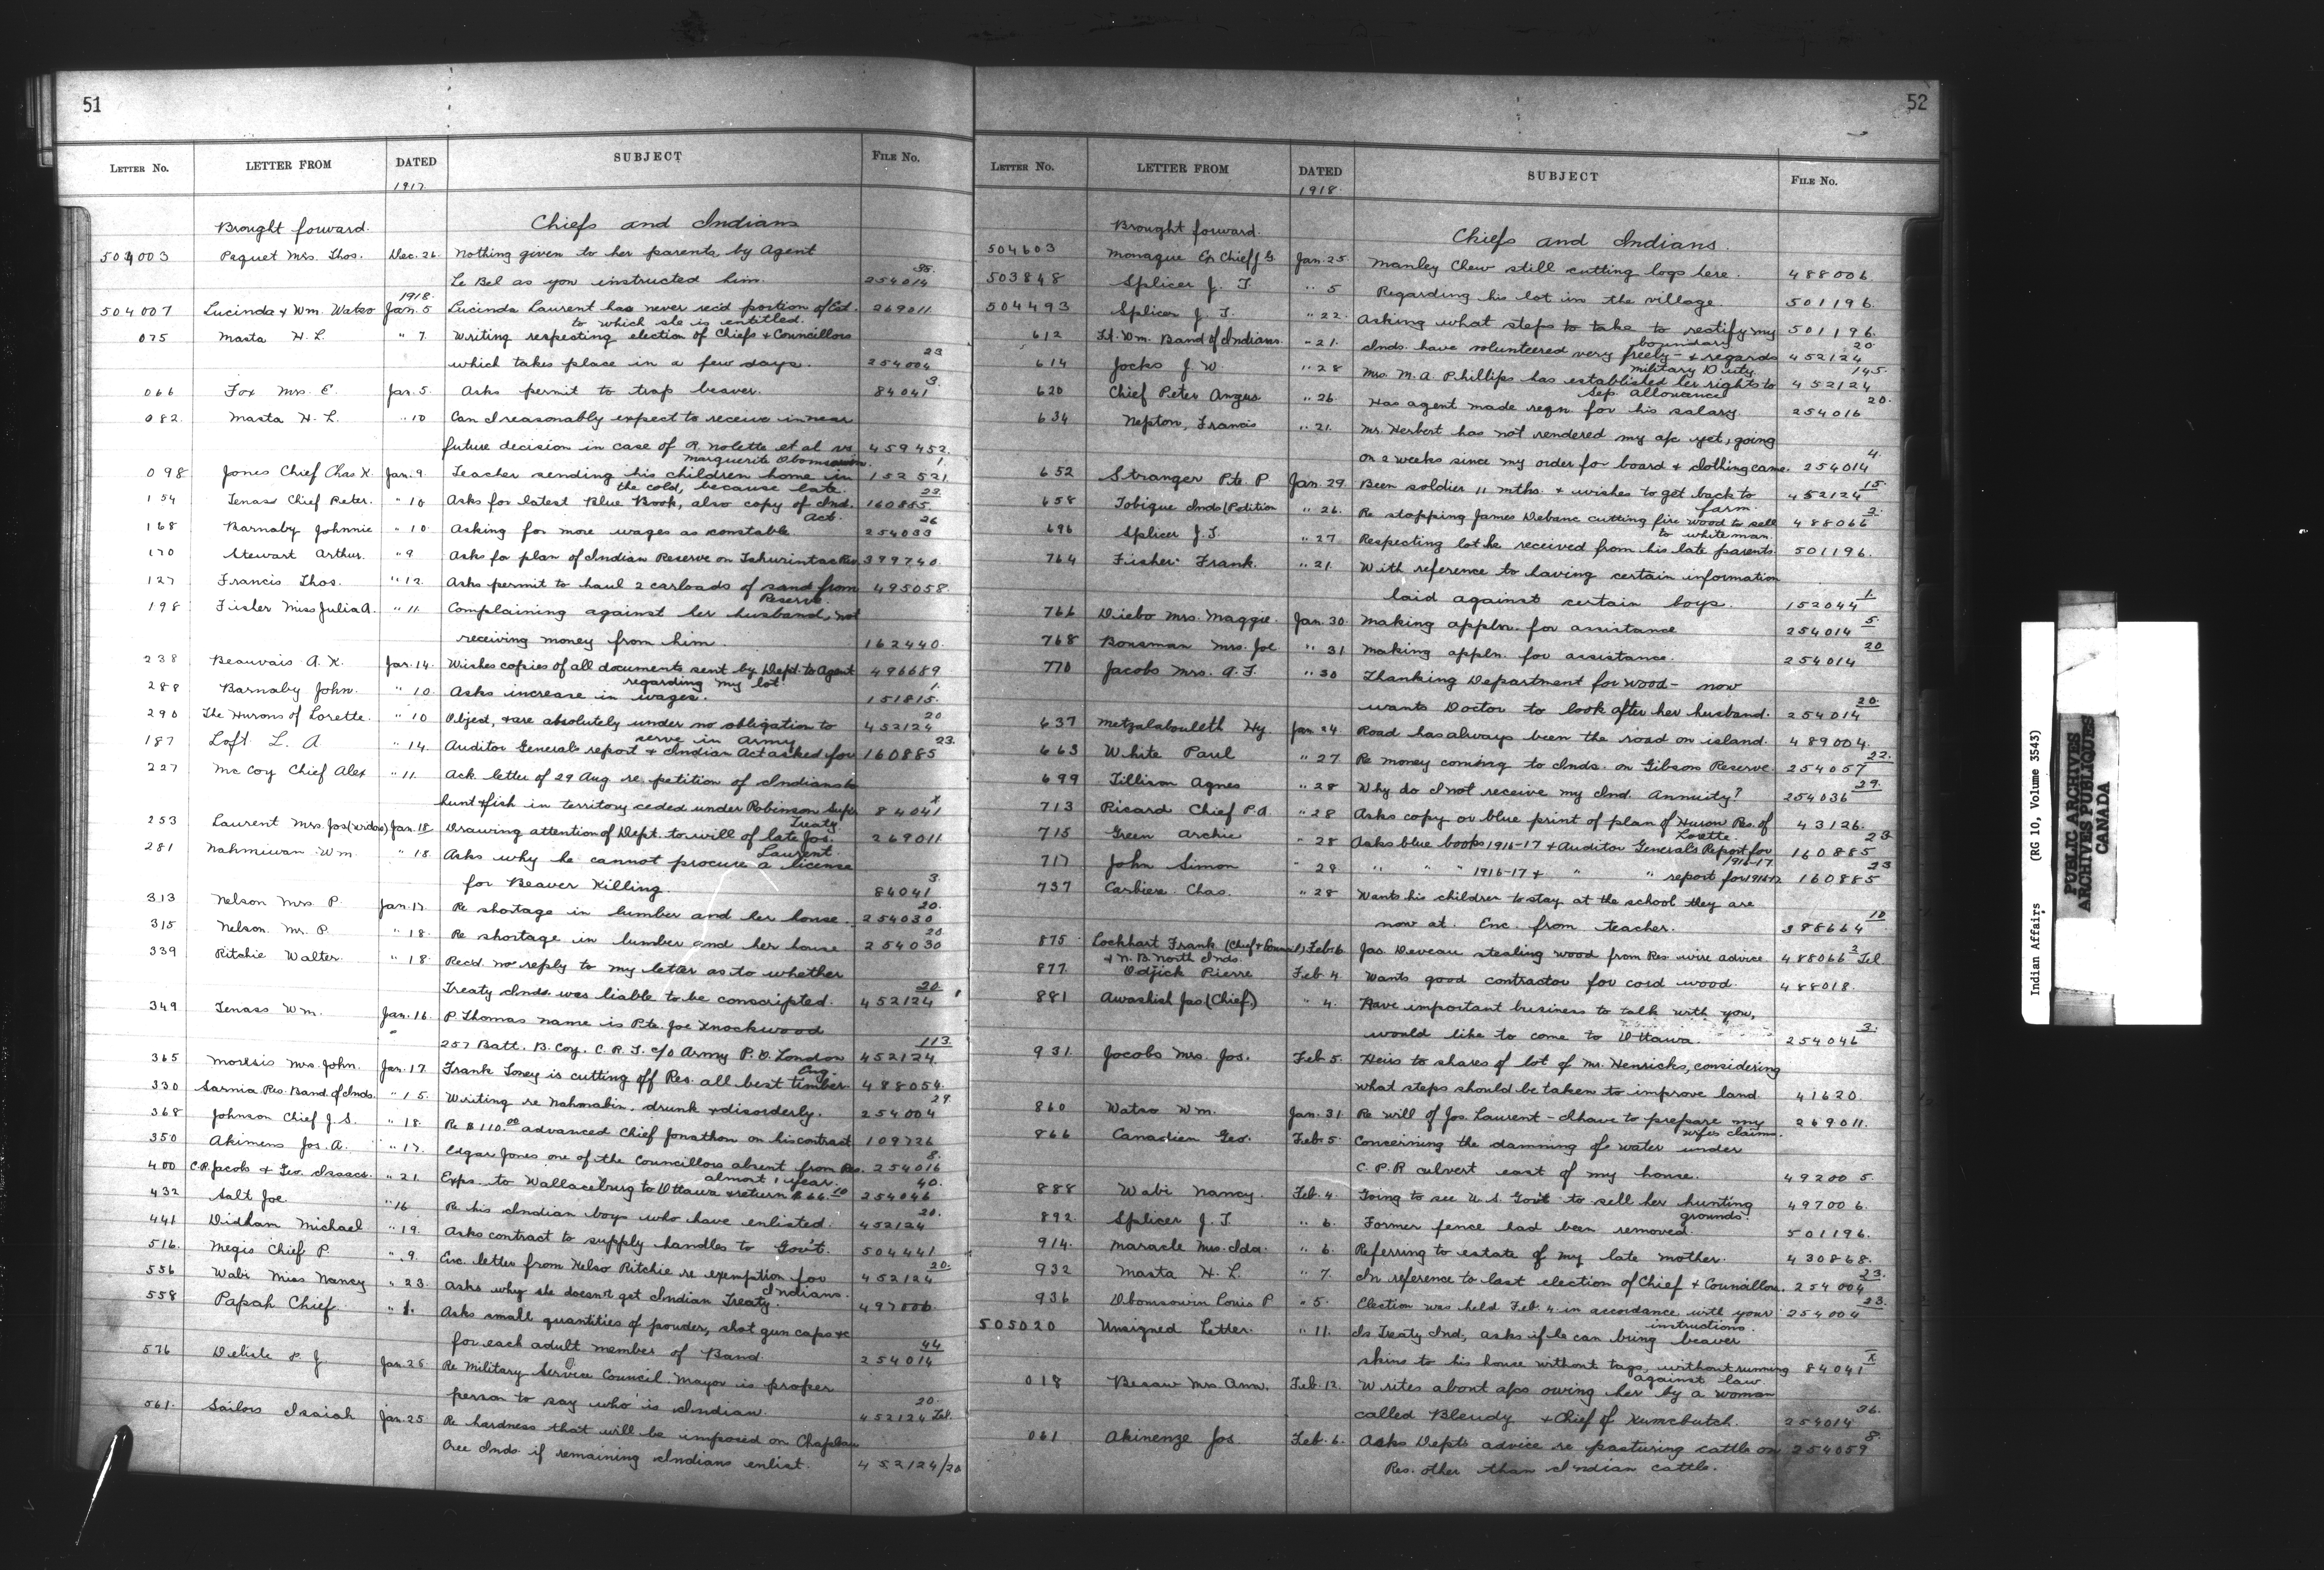 51
LETTER No. LETTER FROM DATED SUBJECT FILE No.
1917
Brought forward. Chiefs and Indians
504003 Paquet Mrs. Thos. Dec. 26. Nothing given to her parents by Agent
Le Bel as you instructed him. 254014 35.
1918.
504007 Lucinda & Wm. Watso Jan. 5 Lucinda Laurent has never rec'd portion of Est. 269011
to which she is entitled
075 Masta H. L. " 7. Writing respecting election of Chiefs & Councillors
which takes place in a few days. 254004 23
066 Fox Mrs. E. Jan. 5. Asks permit to trap beaver. 84041 3.
082. Masta H. L. " 10 Can I reasonably expect to receive in near
future decision in case of R. Nolette et al vs 459452.
Marguerite Obomsawin.
098 Jones Chief Chas K. Jan. 9. Teacher sending his children home in 152521 1
the cold, because late.
154 Tenass Chief Peter. " 10 Asks for latest Blue Book, also copy of Ind. 160885 23
Act.
168 Barnaby Johnnie " 10. Asking for more wages as constable 254033 26
170 Stewart Arthur. " 9 Asks for plan of Indian Reserve on Res 399740.
127 Francis Thos. " 12. Asks permit to haul 2 carloads of sand from 495058.
Reserve.
198 Fisher Miss Julia A. " 11. Complaining against her husband, not
receiving money from him. 162440.
238 Beauvais A. K. Jan. 14. Wishes copies of all documents sent by Dept. to Agent 496689
regarding my lot
288 Barnaby John. " 10. Asks increase in wages. 151815. 1.
290 The Hurons of Lorette. " 10 Object, & are absolutely under no obligation to 452124 20
serve in Army
187 Loft L. A " 14. Auditor General's report & Indian Act asked for 160885 23.
227 McCoy Chief Alex " 11. Ack. letter of 29 Aug. re petition of Indians to
hunt & fish in territory ceded under Robinson Supr 84041 X
Treaty
253 Laurent Mrs. Jos (widow) Jan. 18. Drawing attention of Dept. to will of late Jos. 269011
Laurent.
281 Nahmiwan Wm " 18. Asks why he cannot procure a license
for Beaver Killing. 84041 3.
313 Nelson Mrs P. Jan. 17. Re shortage in lumber and her house. 254030 20.
315 Nelson. Mr. P. " 18. Re shortage in lumber and her house 254030 20
339 Ritchie Walter. " 18. Recd. no reply to my letter as to whether
Treaty Inds. was liable to be conscripted. 452124 20
349 Tenass Wm. Jan. 16. P. Thomas name is Pte. Joe Knockwood
257 Batt. B. Coy. C. R. T. c/o Army P. O. London 452124. 113
Eng.
365 Mrs. John. Jan. 17. Frank Toney is cutting off Res. all best timber 488054.
330 Sarnia Res. Band of Inds. " 15. Writing re Nahmabin, drunk & disorderly. 254004 29.
368 Johnson Chief J. S. " 18. Re $110.00 advanced Chief Jonathon on his contract 109726
350 Akimens Jos. A. " 17. Edgar Jones one of the Councillors absent from Res. 254016 8.
almost 1 year.
400 C. P. Jacobs & Geo. Isaacs. " 21. Exps. to Wallaceburg to Ottawa & return $66.10 254046 40.
432 Salt Joe " 16 Re his Indian boys who have enlisted. 452124 20.
441 Didham Michael " 19. Asks contract to supply handles to Gov't. 504441
516. Megis Chief P. " 9. Enc. letter from Kelso Ritchie re exemption for 452124 20.
Indians.
536 Wabi Miss Nancy " 23. Asks why she doesn't get Indian Treaty. 497006
558 Papah Chief " 1. Asks small quantities of powder, shot gun caps &c
for each adult member of Band. 254014 44
576 Delisle P. J. Jan. 26. Re Military Service Council. Mayor is proper
person to say who is Indian. 452124 Tel. 20.
561. Sailors Isaiah Jan. 25 Re hardness that will be imposed on Chapleau
Cree Inds if remaining Indians enlist. 452124/20
52
LETTER No. LETTER FROM DATED SUBJECT FILE No.
1918.
Brought forward. Chiefs and Indians.
504603 Monague Ex Chief G. Jan. 25. Manley Chew still cutting logs here. 488006.
503848 Splicer J. T " 5 Regarding his lot in the village. 501196.
504493 Splicer J. T. " 22. Asking what steps to take to rectify my 501196.
boundary
612 Ft. Wm. Band of Indians. " 21. Inds. have volunteered very freely - & regards 452124 20.
Military Duty.
614 Jocks J. W. " 28 Mrs. M. A. Phillips has established her rights to 452124 145.
Sep. allowance
620 Chief Peter Angus " 26. Has agent made reqn. for his salary 254016 20.
634 Nepton, Francis " 21. Mr. Herbert has not rendered my a/c yet, going
on 2 weeks since my order for board & clothing came. 254014 4.
652 Stranger Pte. P Jan. 29 Been soldier 11 mths. & wishes to get back to 452124 15.
farm.
658 Tobique Inds (Petition " 26. Re stopping James Debane cutting fire wood to sell 488066 2.
to white man.
696 Splicer J. T. " 27. Respecting lot he received from his late parents. 501196.
764 Fisher Frank. " 21. With reference to having certain information
laid against certain boys. 152044 1.
766 Diebo Mrs. Maggie. Jan. 30. Making appln. for assistance 254014 5.
768 Bonsman Mrs. Joe " 31 Making appln. for assistance. 254014 20
770 Jacobs Mrs. A. T. " 30 Thanking Department for wood - now
wants Doctor to look after her husband. 254014 20.
637 Metzalabouleth Hy Jan 24. Road has always been the road on island. 489004.
663 White Paul " 27 Re money coming to Inds. on Gibson Reserve 254057 22.
699 Tillison Agnes " 28 Why do I not receive my Ind. Annuity? 254036 29.
713 Picard Chief P. A. " 28 Asks copy or blue print of plan of Huron Res. of 43126.
Lorette.
715 Green Archie " 28 Asks blue books 1916-17 & Auditor General's Report for 160885 23
1916-17
717 John Simon " 29 " " " 1916-17 & " " report for 1916-17 160885 23
737 Carbiere Chas. " 28 Wants his children to stay at the school they are
now at. Enc. from teacher. 398664 10
875 Lockhart Frank (Chief & Council) Feb. 6 Jas. Deveau stealing wood from Res. wire advice 488066 2 Tel.
& N. B. North Inds.
877 Odjick Pierre Feb 4. Wants good contractor for cord wood. 488018.
881 Awashish Jas (Chief) " 4. Have important business to talk with you,
would like to come to Ottawa. 254046 3.
931. Jacobs Mrs. Jos. Feb. 5. Heirs to shares of lot of Mr. Henricks, considering
what steps should be taken to improve land. 41620.
860 Watso Wm. Jan. 31. Re will of Jos. Laurent - I have to prepare my 269011.
wife's claims.
866 Canadien Geo. Feb. 5. Concerning the damning of water under
C. P. R culvert east of my house. 492005.
888 Wabi Nancy. Feb. 4. Going to see U. S. Gov't to sell her hunting 497006.
grounds.
892 Splicer J. T " 6. Former fence had been removed. 501196.
914. Maracle Mrs. Ida. " 6. Referring to estate of my late mother. 430868.
932 Masta H. L. " 7. In reference to last election of Chief & Councillors. 254004 23.
936 Obomsowin Louis P " 5. Election was held Feb. 4 in accordance with your 254004 23.
instructions.
505020 Unsigned Letter. " 11. Is Treaty Ind, asks if he can bring beaver
skins to his house without tags, without running 84041 X
against law
018 Besaw Mrs Ann. Feb. 12. Writes about a/cs owing her by a woman
called Blendy & Chief of 254014 26.
061 Akinenze Jos Feb. 6. Asks Dept's advice re pasturing cattle on 254059 8.
Res. other than Indian cattle.
Indian Affairs (RG 10, Volume 3543)
PUBLIC ARCHIVES
ARCHIVES PUBLIQUES
CANADA